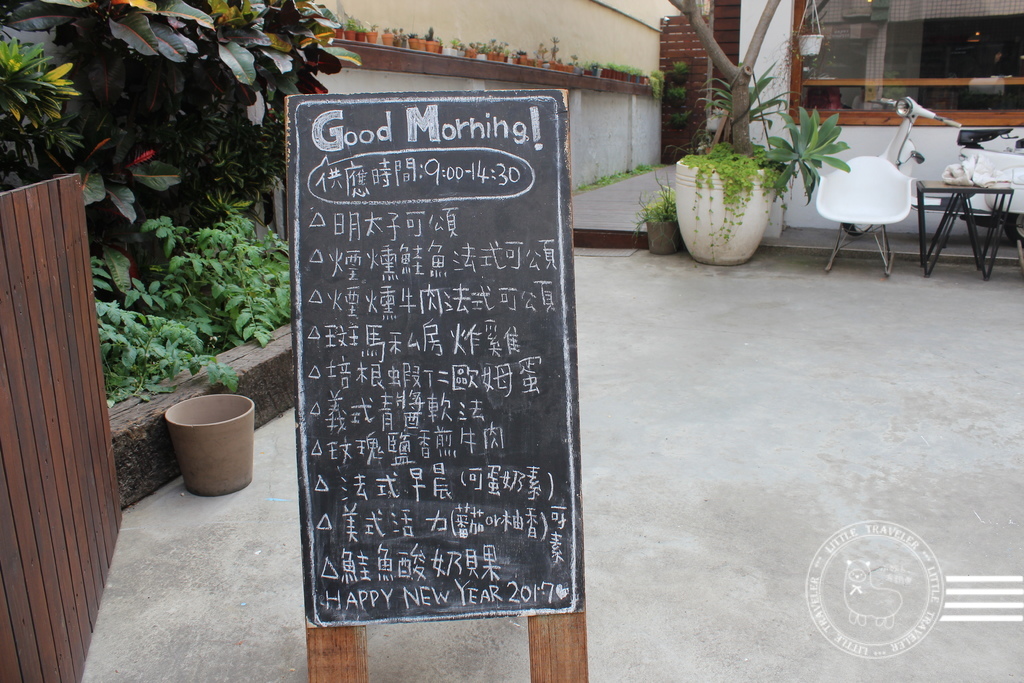 Good Morning!
供應時間:9:00-14:30
△明太子可頌
△煙燻鮭魚法式可頌
△煙燻牛肉法式可頌
△斑馬私房炸雞
△培根蝦仁歐姆蛋
△義式青醬軟法
△玫瑰鹽香煎牛肉
△法式早晨(可蛋奶素)
△美式活力(蕃茄or柚香)可素
△鮭魚酸奶貝果
HAPPY NEW YEAR 2017
LITTLE TRAVELER *** LITTLE TRAVELER ***